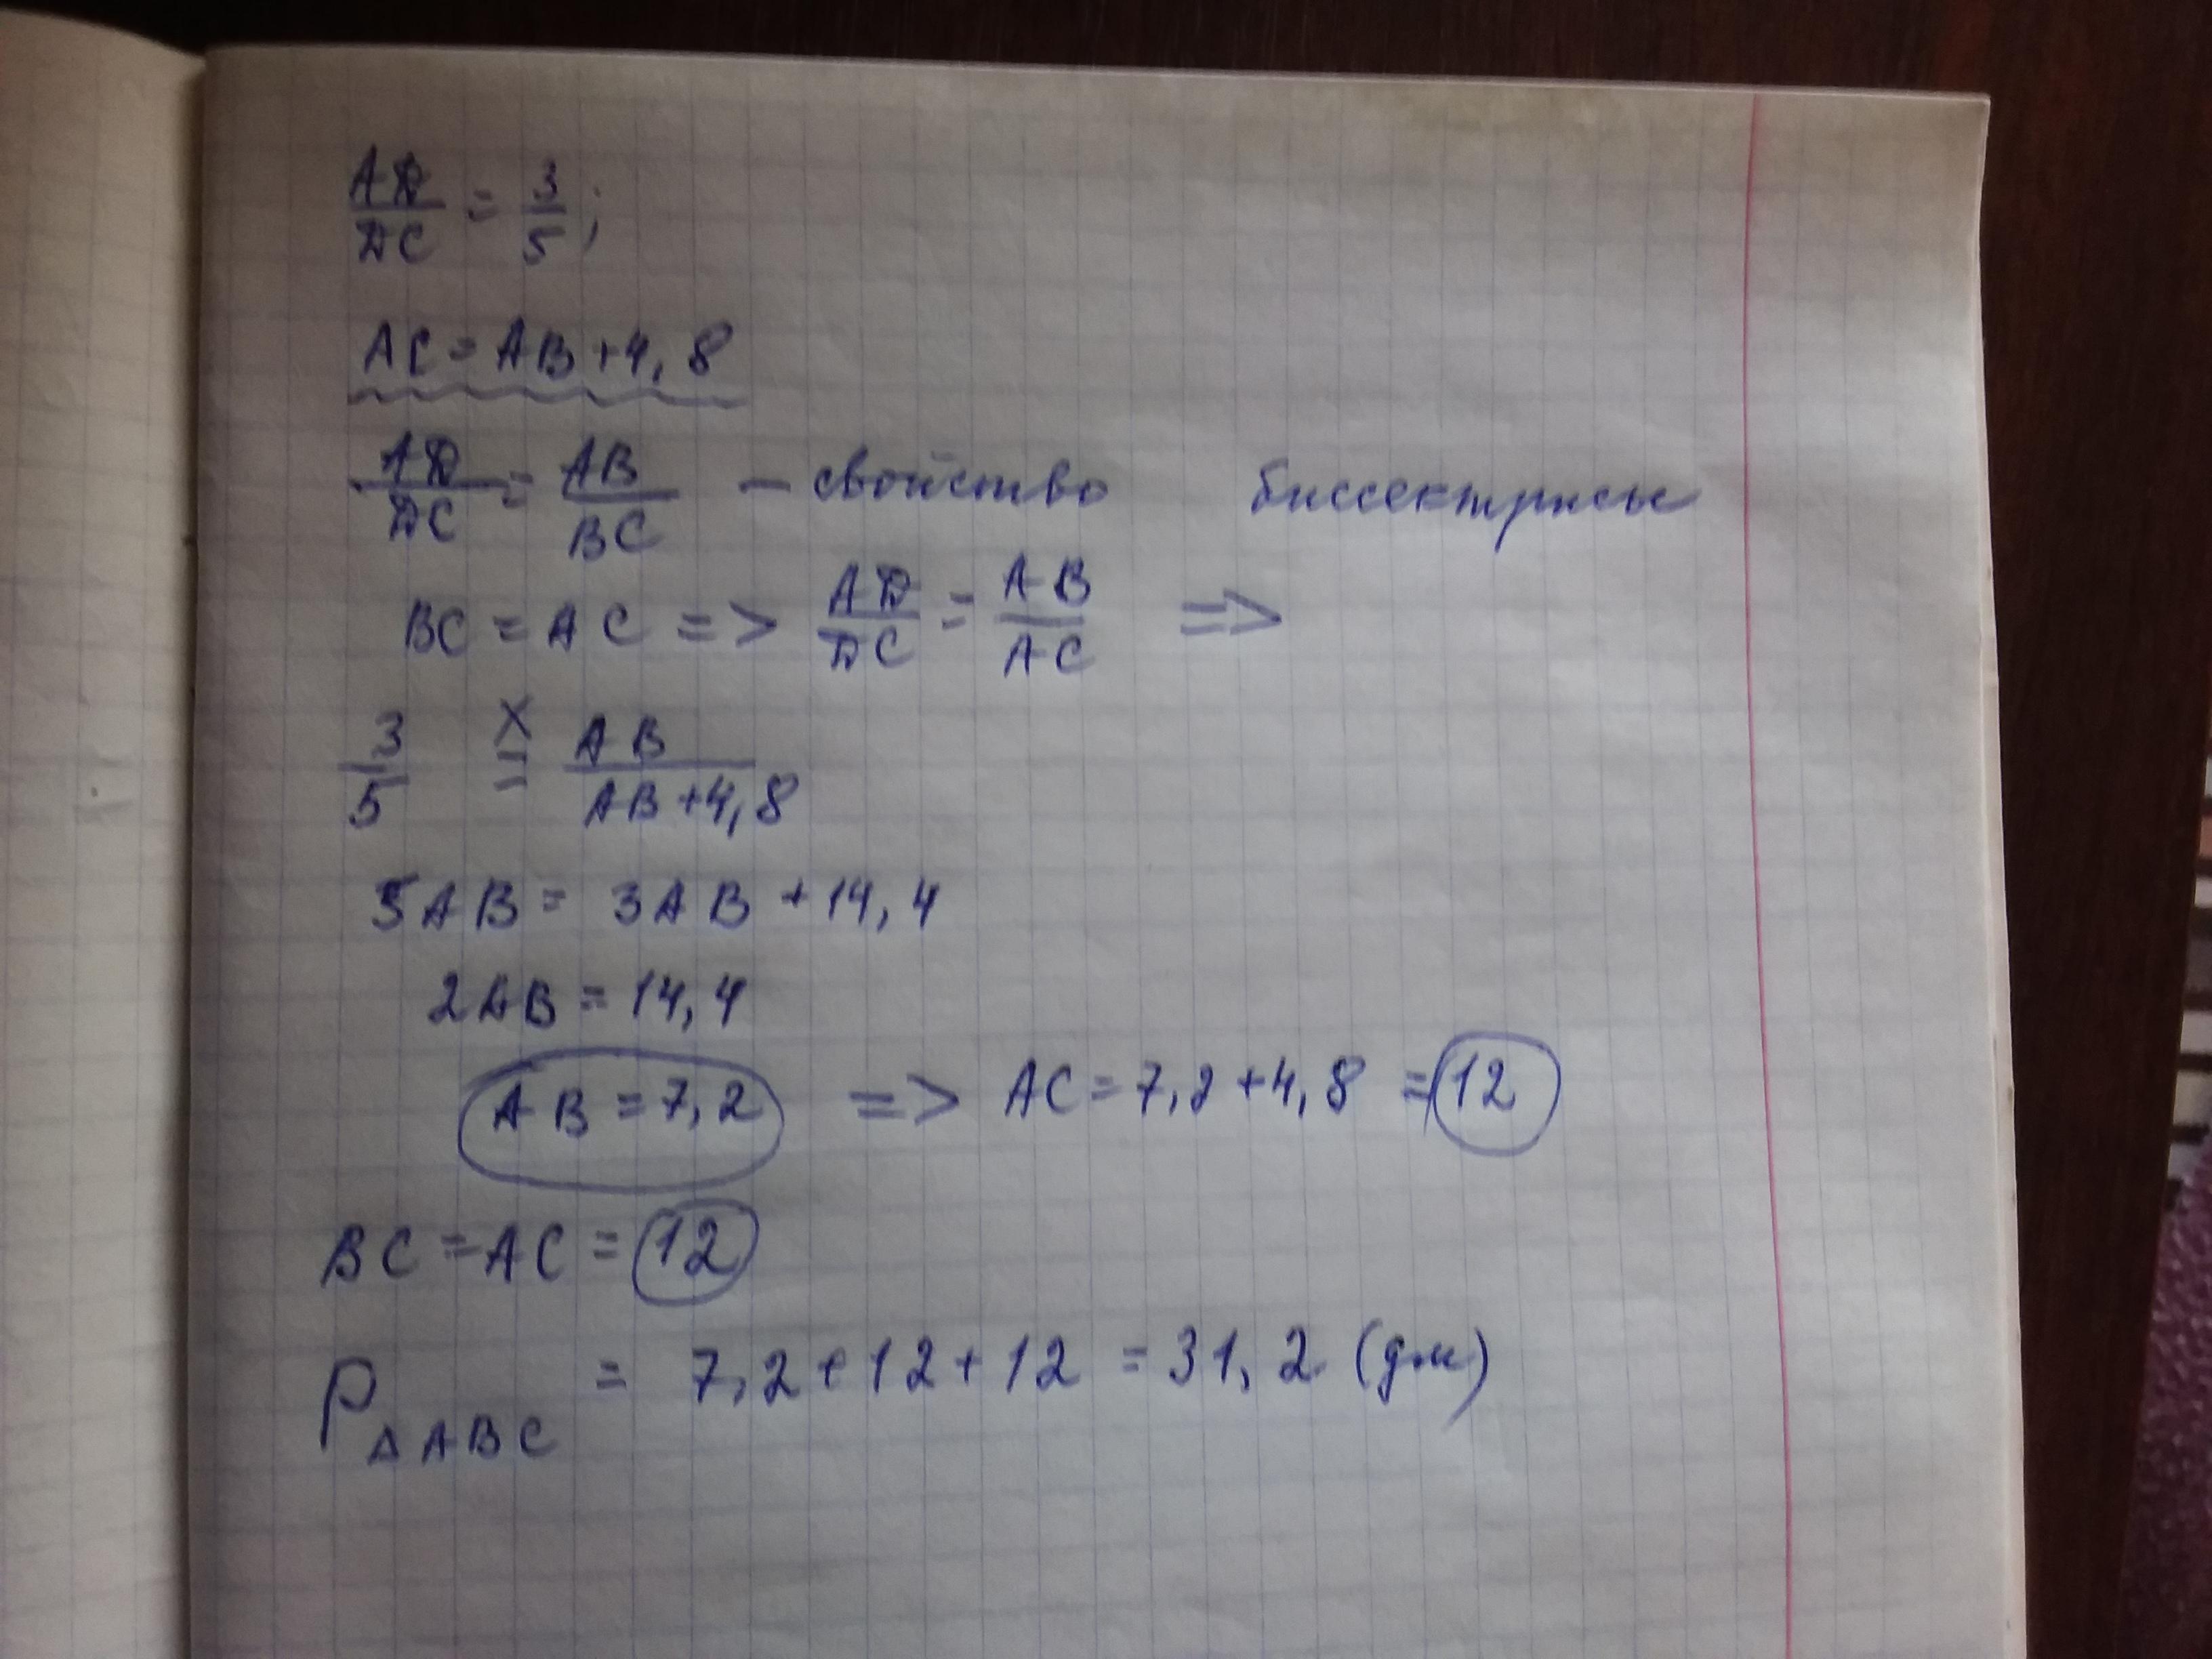 AD/DC = 3/5;
AC = AB + 4,8
AD/DC = AB/BC — свойство биссектрисы
BC = AC => AD/DC = AB/AC =>
3/5 = x AB/AB+4,8
5AB = 3AB + 14,4
2AB = 14,4
AB = 7,2 => AC = 7,2 + 4,8 = 12
BC = AC = 12
P△ABC = 7,2 + 12 + 12 = 31,2 (дм)